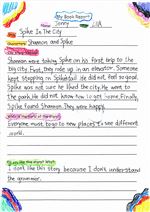 My Book Report
Name: Jenny 2A
Title
Spike In The City
Characters Shannon and Spike
Shannon were taking Spike on his first trip to the
big city. First, they rode up in an elevator. Someone
kept stepping on Spike's tail. He did not feel so good.
Spike was not sure he liked the city. He went to
the park. He did not know how to get home. Finally,
Spike found Shannon. They were happy.
Everyone must go to new places to see different
world.
I don't like this story because I don't understand
the grammar.